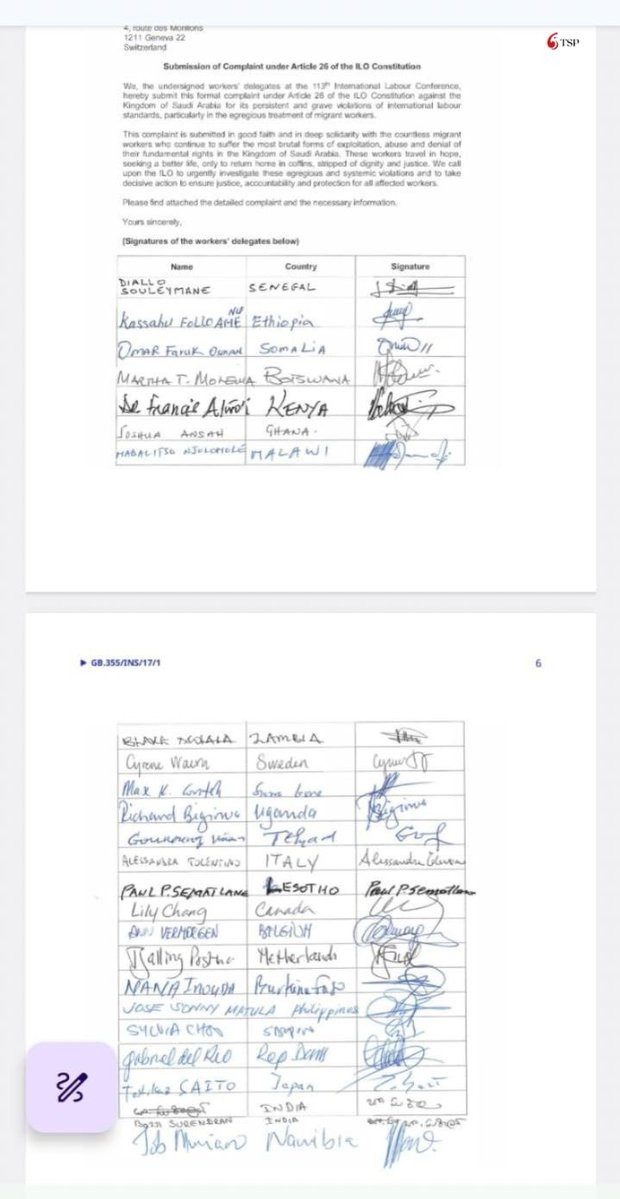 4, route des Morillons
1211 Geneva 22
Switzerland
TSP
Submission of Complaint under Article 26 of the ILO Constitution
We, the undersigned workers' delegates at the 113th International Labour Conference,
hereby submit this formal complaint under Article 26 of the ILO Constitution against the
Kingdom of Saudi Arabia for its persistent and grave violations of international labour
standards, particularly in the egregious treatment of migrant workers.
This complaint is submitted in good faith and in deep solidarity with the countless migrant
workers who continue to suffer the most brutal forms of exploitation, abuse and denial of
their fundamental rights in the Kingdom of Saudi Arabia. These workers travel in hope,
seeking a better life, only to return home in coffins, stripped of dignity and justice. We call
upon the ILO to urgently investigate these egregious and systemic violations and to take
decisive action to ensure justice, accountability and protection for all affected workers.
Please find attached the detailed complaint and the necessary information.
Yours sincerely,
(Signatures of the workers' delegates below)
Name Country Signature
DIALLO
SOULEYMANE SENEGAL
Kassahu FOLLO Ethiopia
OMAR FARUK OSMAN SOMALIA
MARTHA T. BOTSWANA
Francis KENYA
JOSHUA ANSAH GHANA.
MALAWI
GB.355/INS/17/1 6
ZAMBIA
Sweden
Max K.
Richard Bigirwa Uganda
Tchad
ALESSANDRA ITALY
PAUL P. SEMATLANE LESOTHO Paul P Sematlane
Lily Chang Canada
ANN VERMORGEN BELGIUM
Netherlands
NANA Burkina Faso
JOSE SONNY MATULA Philippines
SYLVIA
Gabriel del Rio Rep Dom
SAITO Japan
INDIA
SURENDRAN INDIA
Job Muniaro Namibia